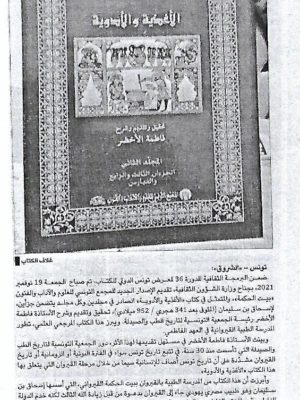 الأغذية والأدوية
تحقيق وتقديم وشرح
فاطمة الأخضر
المجلد الثاني
الجزءان الثالث والرابع
والفهارس
غلاف الكتاب
تونس ـ «الشروق»:
ضمن البرمجة الثقافية للدورة 36 لمعرض تونس الدولي للكتاب، تم صباح الجمعة 19 نوفمبر
2021، بجناح وزارة الشؤون الثقافية، تقديم الإصدار الجديد للمجمع التونسي للعلوم والآداب والفنون
«بيت الحكمة»، والمتمثل في كتاب «الأغذية والأدوية» الصادر في مجلدين وكل مجلد يتضمن جزأين،
لإسحاق بن سليمان (المتوفي بعد 341 هجري / 952 ميلادي)، تحقيق وتقديم وشرح الأستاذة فاطمة
الأخضر وجمعية التونسية لتاريخ الطب والصيدلة. ويبرز هذا الكتاب المرجعي العلمي، تطور
المدرسة الطبية القيروانية في العهد الفاطمي.
وبينت الأستاذة فاطمة الأخضر في مستهل تقديمها لهذا الأثر، دور الجمعية التونسية لتاريخ الطب
والصيدلة التي تأسست منذ 30 سنة، في تتبع تاريخ تونس سواء في الفترة البونية أو الرومانية أو تاريخ
القيروان مشددة على أن تاريخ تونس أضاف للإنسانية سيما من خلال مرحلة القيروان التي يتعلق بها
هذا الكتاب «الأغذية والأدوية».
وأبرزت أن هذا الكتاب من المدرسة الطبية بالقيروان ببيت الحكمة القيرواني، التي أسسها إسحاق بن
سليمان وهو طبيب مصري يهودي جاء إلى القيروان بدعوة من قبل زيادة الله الثالث لكنه خدم الدولة